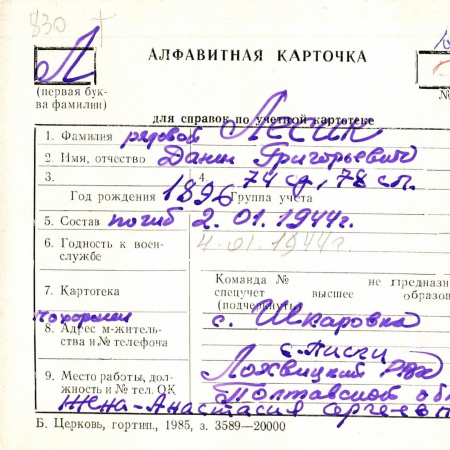 830 +
Л АЛФАВИТНАЯ КАРТОЧКА
(первая бук-
ва фамилии) №
для справок по учетной картотеке
1. Фамилия рядовой Лесик
2. Имя, отчество Данил Григорьевич
3. 4. 74 сд, 78 сп.
Год рождения 1896 Группа учета
5. Состав погиб 2.01.1944г.
6. Годность к воен- 4.01.1944г.
службе
Команда № не предназн
7. Картотека спецучет высшее образов
(подчеркнуть)
похоронен с. Шкаровка
8. Адрес м-житель-
ства и № телефона с. Писки
9. Место работы, дол- Лохвицкий РВК
жность и № тел. ОК Полтавской об
жена - Анастасия Сергеевн
Б. Церковь, гортип., 1985, з. 3589—20000